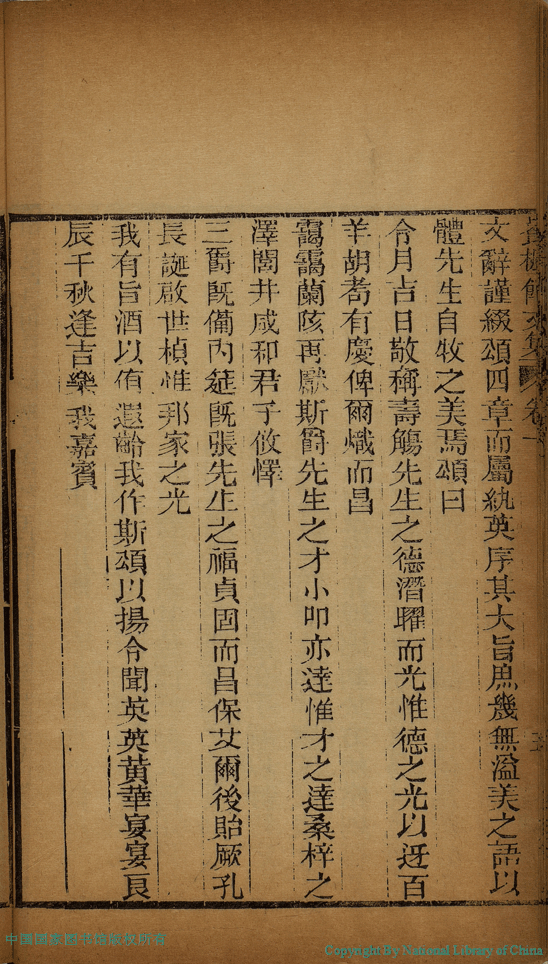 文辭謹綴頌四章而屬紈英序其大旨庶幾無溢美之語以
體先生自牧之美焉頌曰
令月吉日敬稱壽觴先生之德潛曜而光惟德之光以迓百
羊胡耇有慶俾爾熾而昌
靄靄蘭陔再獻斯爵先生之才小叩亦達惟才之達桑梓之
澤閭井咸和君子攸懌
三爵旣備內筵旣張先生之福貞固而昌保艾爾後貽厥孔
長誕啟世楨惟邦家之光
我有旨酒以侑遐齡我作斯頌以揚令聞英英黃華宴宴良
辰千秋逢吉樂我嘉賓
中国国家图书馆版权所有
Copyright By National Library of China